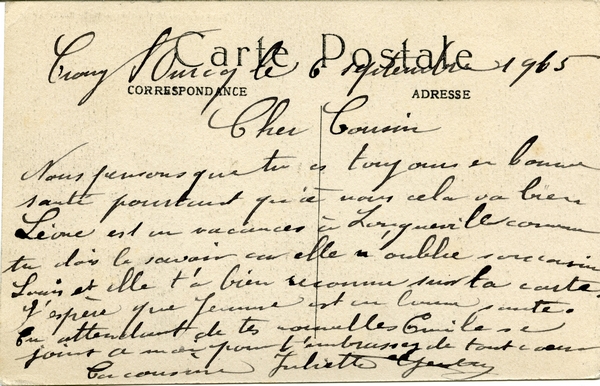 Carte Postale
Crouy s/Ourcq le 6 septembre 1915
CORRESPONDANCE
ADRESSE
Cher Cousin
Nous pensons que tu es toujours en bonne
santé pourtant qu'à nous cela va bien
est en vacances à Longueville comme
tu dois le savoir car elle n'oublie son cousin
Louis et elle t'a bien reconnu sur la carte.
J'espère que Jeanne est en bonne santé.
En attendant de tes nouvelles Emile se
joint à moi pour t'embrasser de tout cœur
Ta cousine Juliette